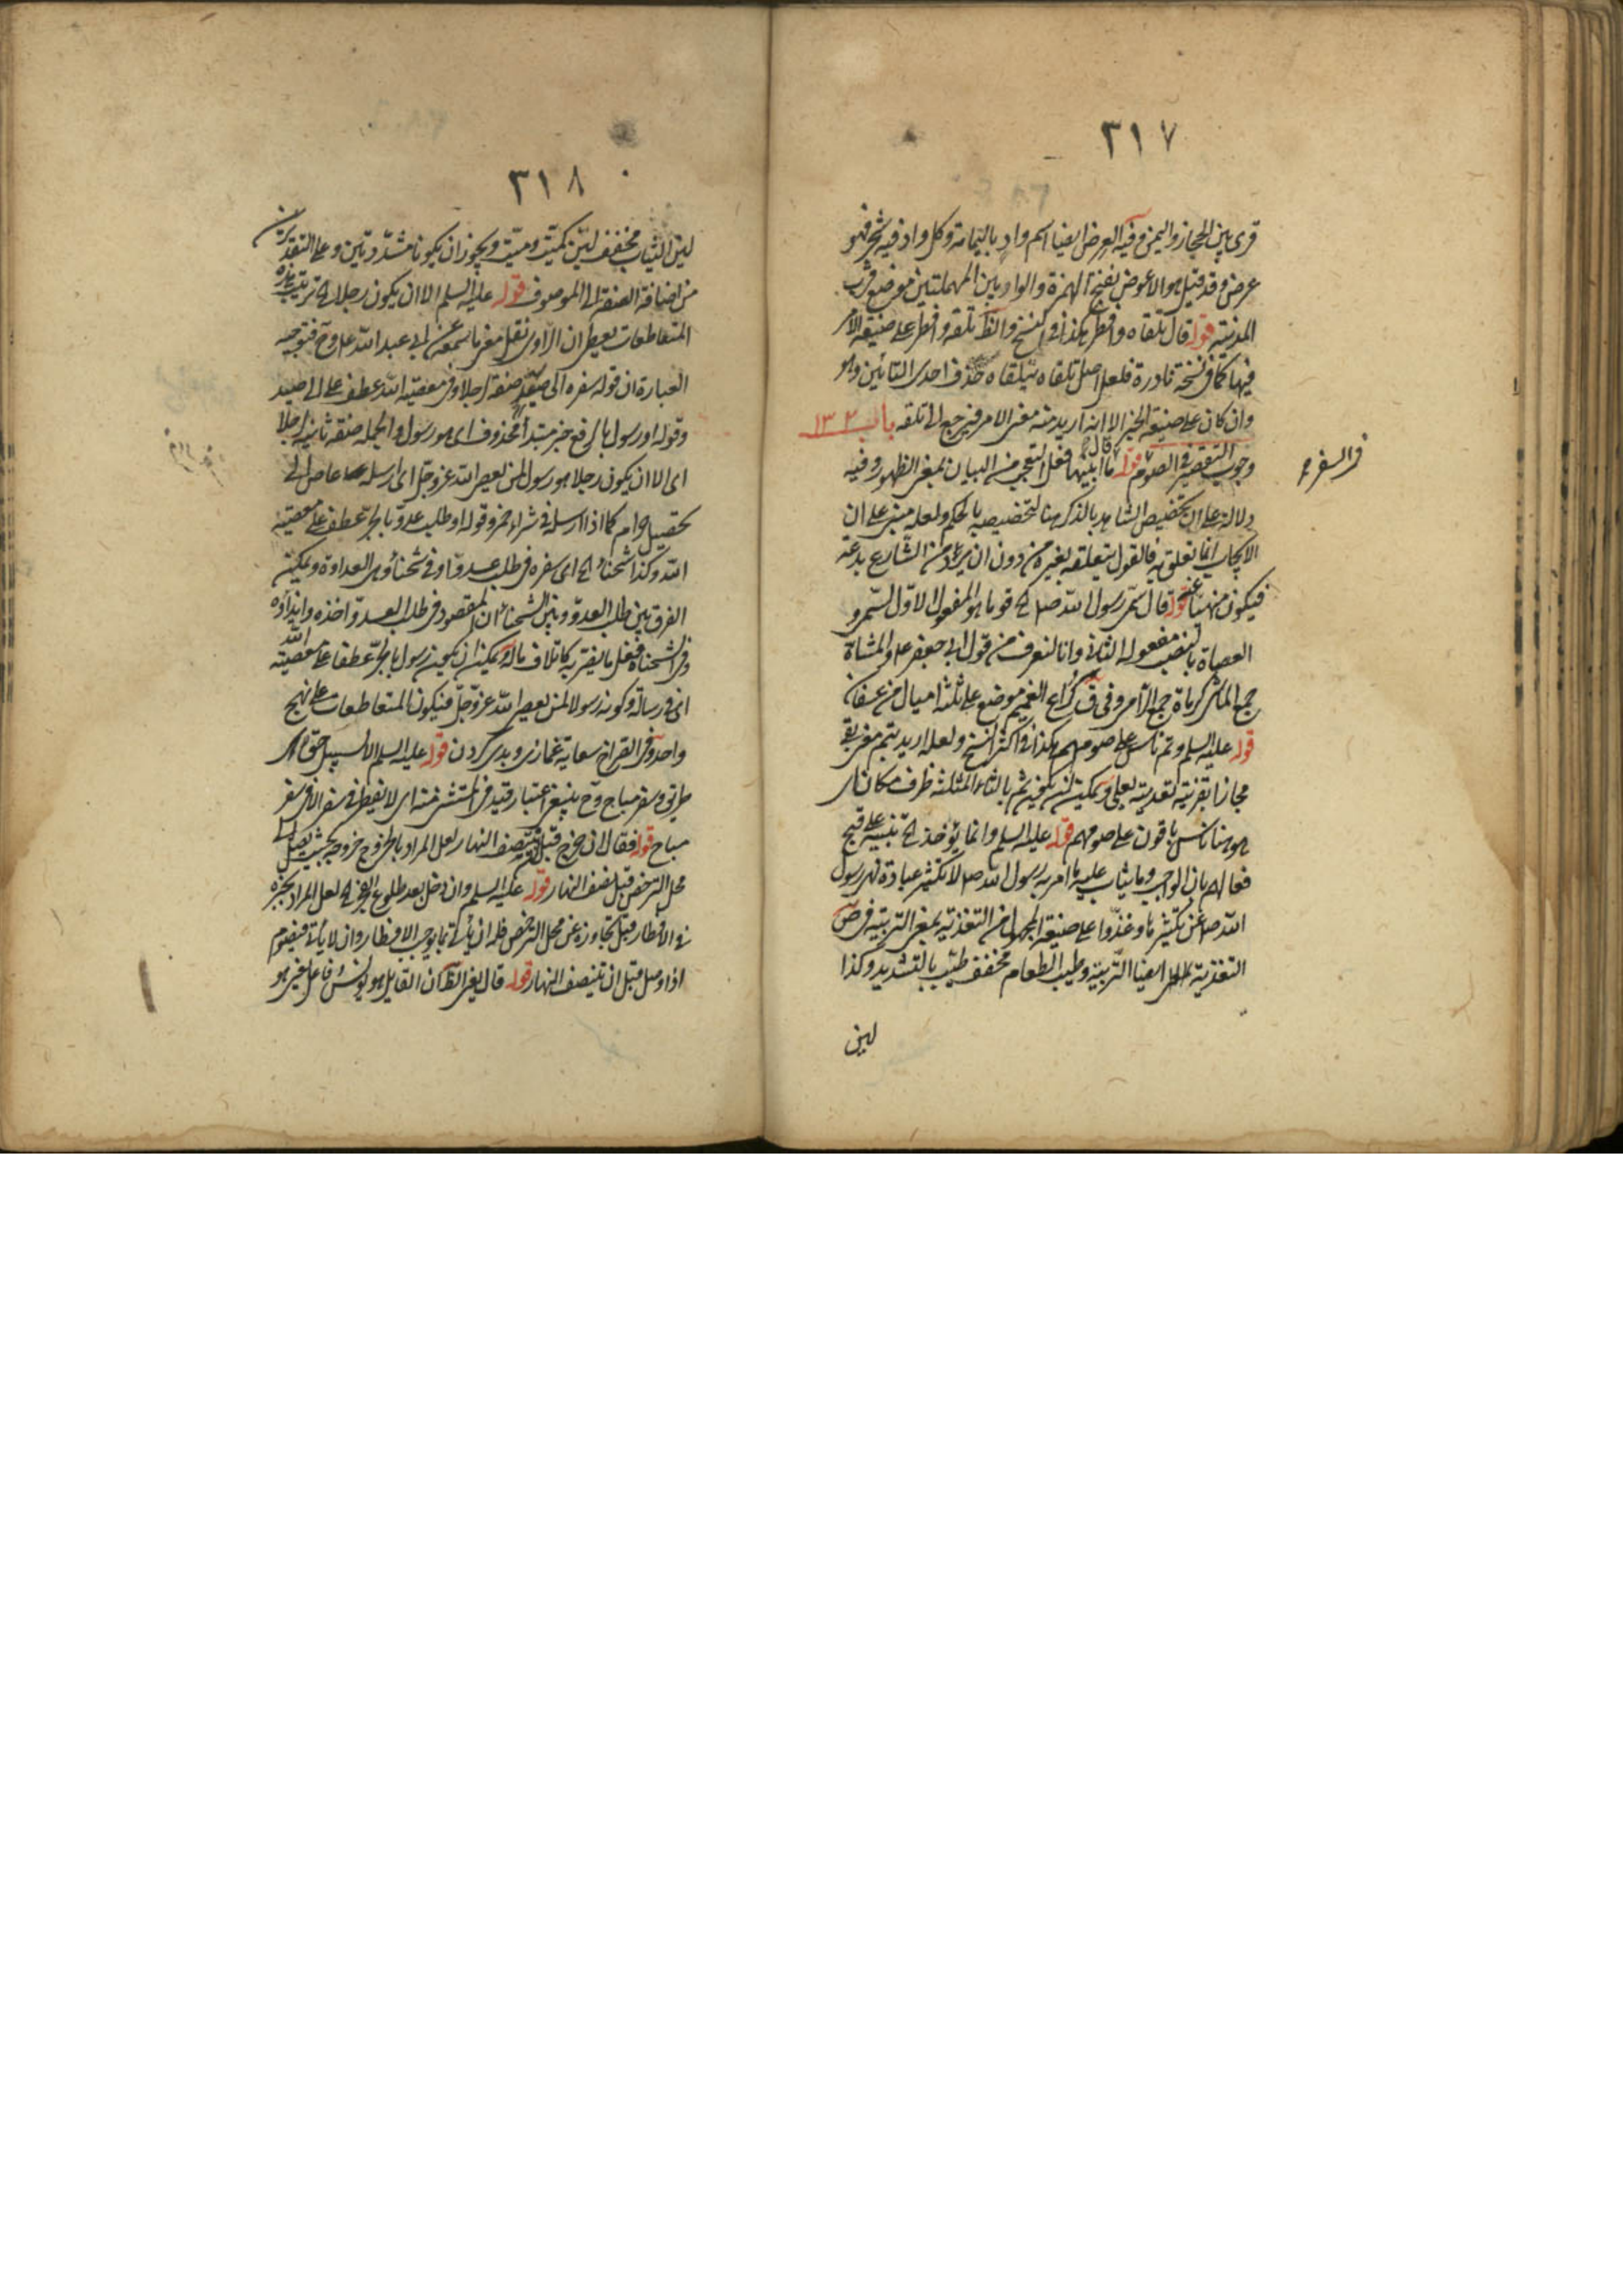 ٣١٧
قرى بين الحجاز واليمن وفيه العرض ايضا اسم واد باليمامة وكل واد فيه شجر فهو
عرض وقد قيل هو الاعوض بفتح الهمزة والواو بين المهملتين موضع قرب
المدينة قوله قال تلقاه وافطر هكذا في النسخ والظ تلقه وافطر على صيغة الامر
فيها كما في نسخة نادرة فلعل اصل تلقاه تتلقاه حذف احدى التائين وهو
وان كان على صيغة الخبر الا انه اريد منه معنى الامر فيرجع الى تلقه باب ١٣٢
وجوب التقصير في الصوم قوله قال ما ابينها فعل التعجب من البيان بمعنى الظهور وفيه
في السفر
دلالة على ان تخصيص الشاهد بالذكر هنا لتخصيصه بالحكم ولعله مبني على ان
الايجاب انما تعلق به فالقول بتعلقه بغيره من دون ان يرد من الشارع بدعة
فيكون منهيا عنه قوله قال سمى رسول الله ص قوما هو المفعول الاول لسمى و
العصاة بالنصب مفعوله الثاني وانا لنعرف من قول ابي جعفر ع والمشاة
جمع الماشي كرماة جمع الرامي وفي ق كراع الغميم موضع على ثلثة اميال من عسفان
قوله عليه السلم وتم ناس على صومهم هكذا في اكثر النسخ ولعله اريد بتم معنى بقي
مجازا بقرينة تعديته بعلى ويمكن ان يكون ثم بالثاء المثلثة ظرف مكان اى
هو هنا ناس باقون على صومهم قوله عليه السلم وانما يؤخذ الخ تنبيه على قبح
فعالهم بان الواجب وما يثاب عليه ما امر به رسول الله ص لا تكثير عبادة نهى رسول
الله ص عن تكثيرها وغذوا على صيغة المجهول من التغذية بمعنى التربية في ص
التغذية ايضا التربية وطيب الطعام مخفف طيب بالتشديد وكذا
لين
٣١٨
لين الثياب مخفف لين كميت وميت ويجوز ان يكونا مشددتين وعلى التقديرين
من اضافة الصفة الى الموصوف قوله عليه السلم الا ان يكون رجلا الخ ترتيب هذه
المتعاطفات يعطي ان الراوى نقل معنى ما سمعه عن ابي عبد الله ع وح فتوجيه
العبارة ان قوله سفره الى صيد صفة رجلا وفي معصية الله عطف على الى صيد
وقوله او رسول بالرفع خبر مبتدأ محذوف اى هو رسول والجملة صفة ثانية لرجلا
اى الا ان يكون رجلا هو رسول لمن يعصى الله عز وجل اى ارسله عاص الى
تحصيل حرام كما اذا ارسله في شراء خمر وقوله او طلب عدو بالجر عطف على معصية
الله وكذا شحناء الخ اى سفره في طلب عدو او في شحناء وهى العداوة ويمكن
الفرق بين طلب العدو وبين الشحناء ان المقصود في طلب العدو اخذه وايذاؤه
وفي الشحناء فعل ما يضر به كاتلاف ماله ويمكن ان يكون رسول بالجر عطفا على معصية الله
اى في رسالة وكونه رسولا لمن يعصى الله عز وجل فيكون المتعاطفات على نهج
واحد وفي القراح سعاية غمازى وبدى كردن قوله عليه السلم الا لسبيل حق اى
طريق وسفر مباح وح ينبغي اعتبار قيد في المستثنى منه اى لا يفطر في سفر الا في سفر
مباح قوله فقال ان خرج قبل ان ينتصف النهار لعل المراد بالخروج خروجه بحيث يصل الى
محل الترخص قبل نصف النهار قوله عليه السلم وان دخل بعد طلوع الفجر الخ لعل المراد تخيره
في الافطار قبل تجاوزه عن محل الترخص فله ان يأتى بما يوجب الافطار وان لا يأتى فيصوم
اذا وصل قبل ان ينتصف النهار قوله قال يعني الظ ان القايل هو يونس وفاعل يعني هو